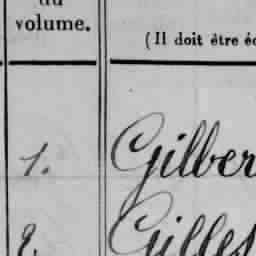 du
volume.
(Il doit être éc
1. Gilber
2. Gilles